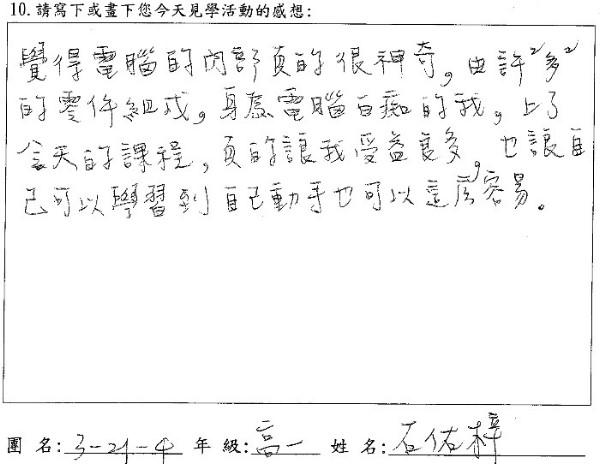 10. 請寫下或畫下您今天見學活動的感想:
覺得電腦的內部真的很神奇，由許²多²
的零件組成，身為電腦白痴的我，上了
今天的課程，真的讓我受益良多，也讓自
己可以學習到自己動手也可以這麼容易。
團 名: 3-21-4 年 級: 高一 姓 名: 石佑梓